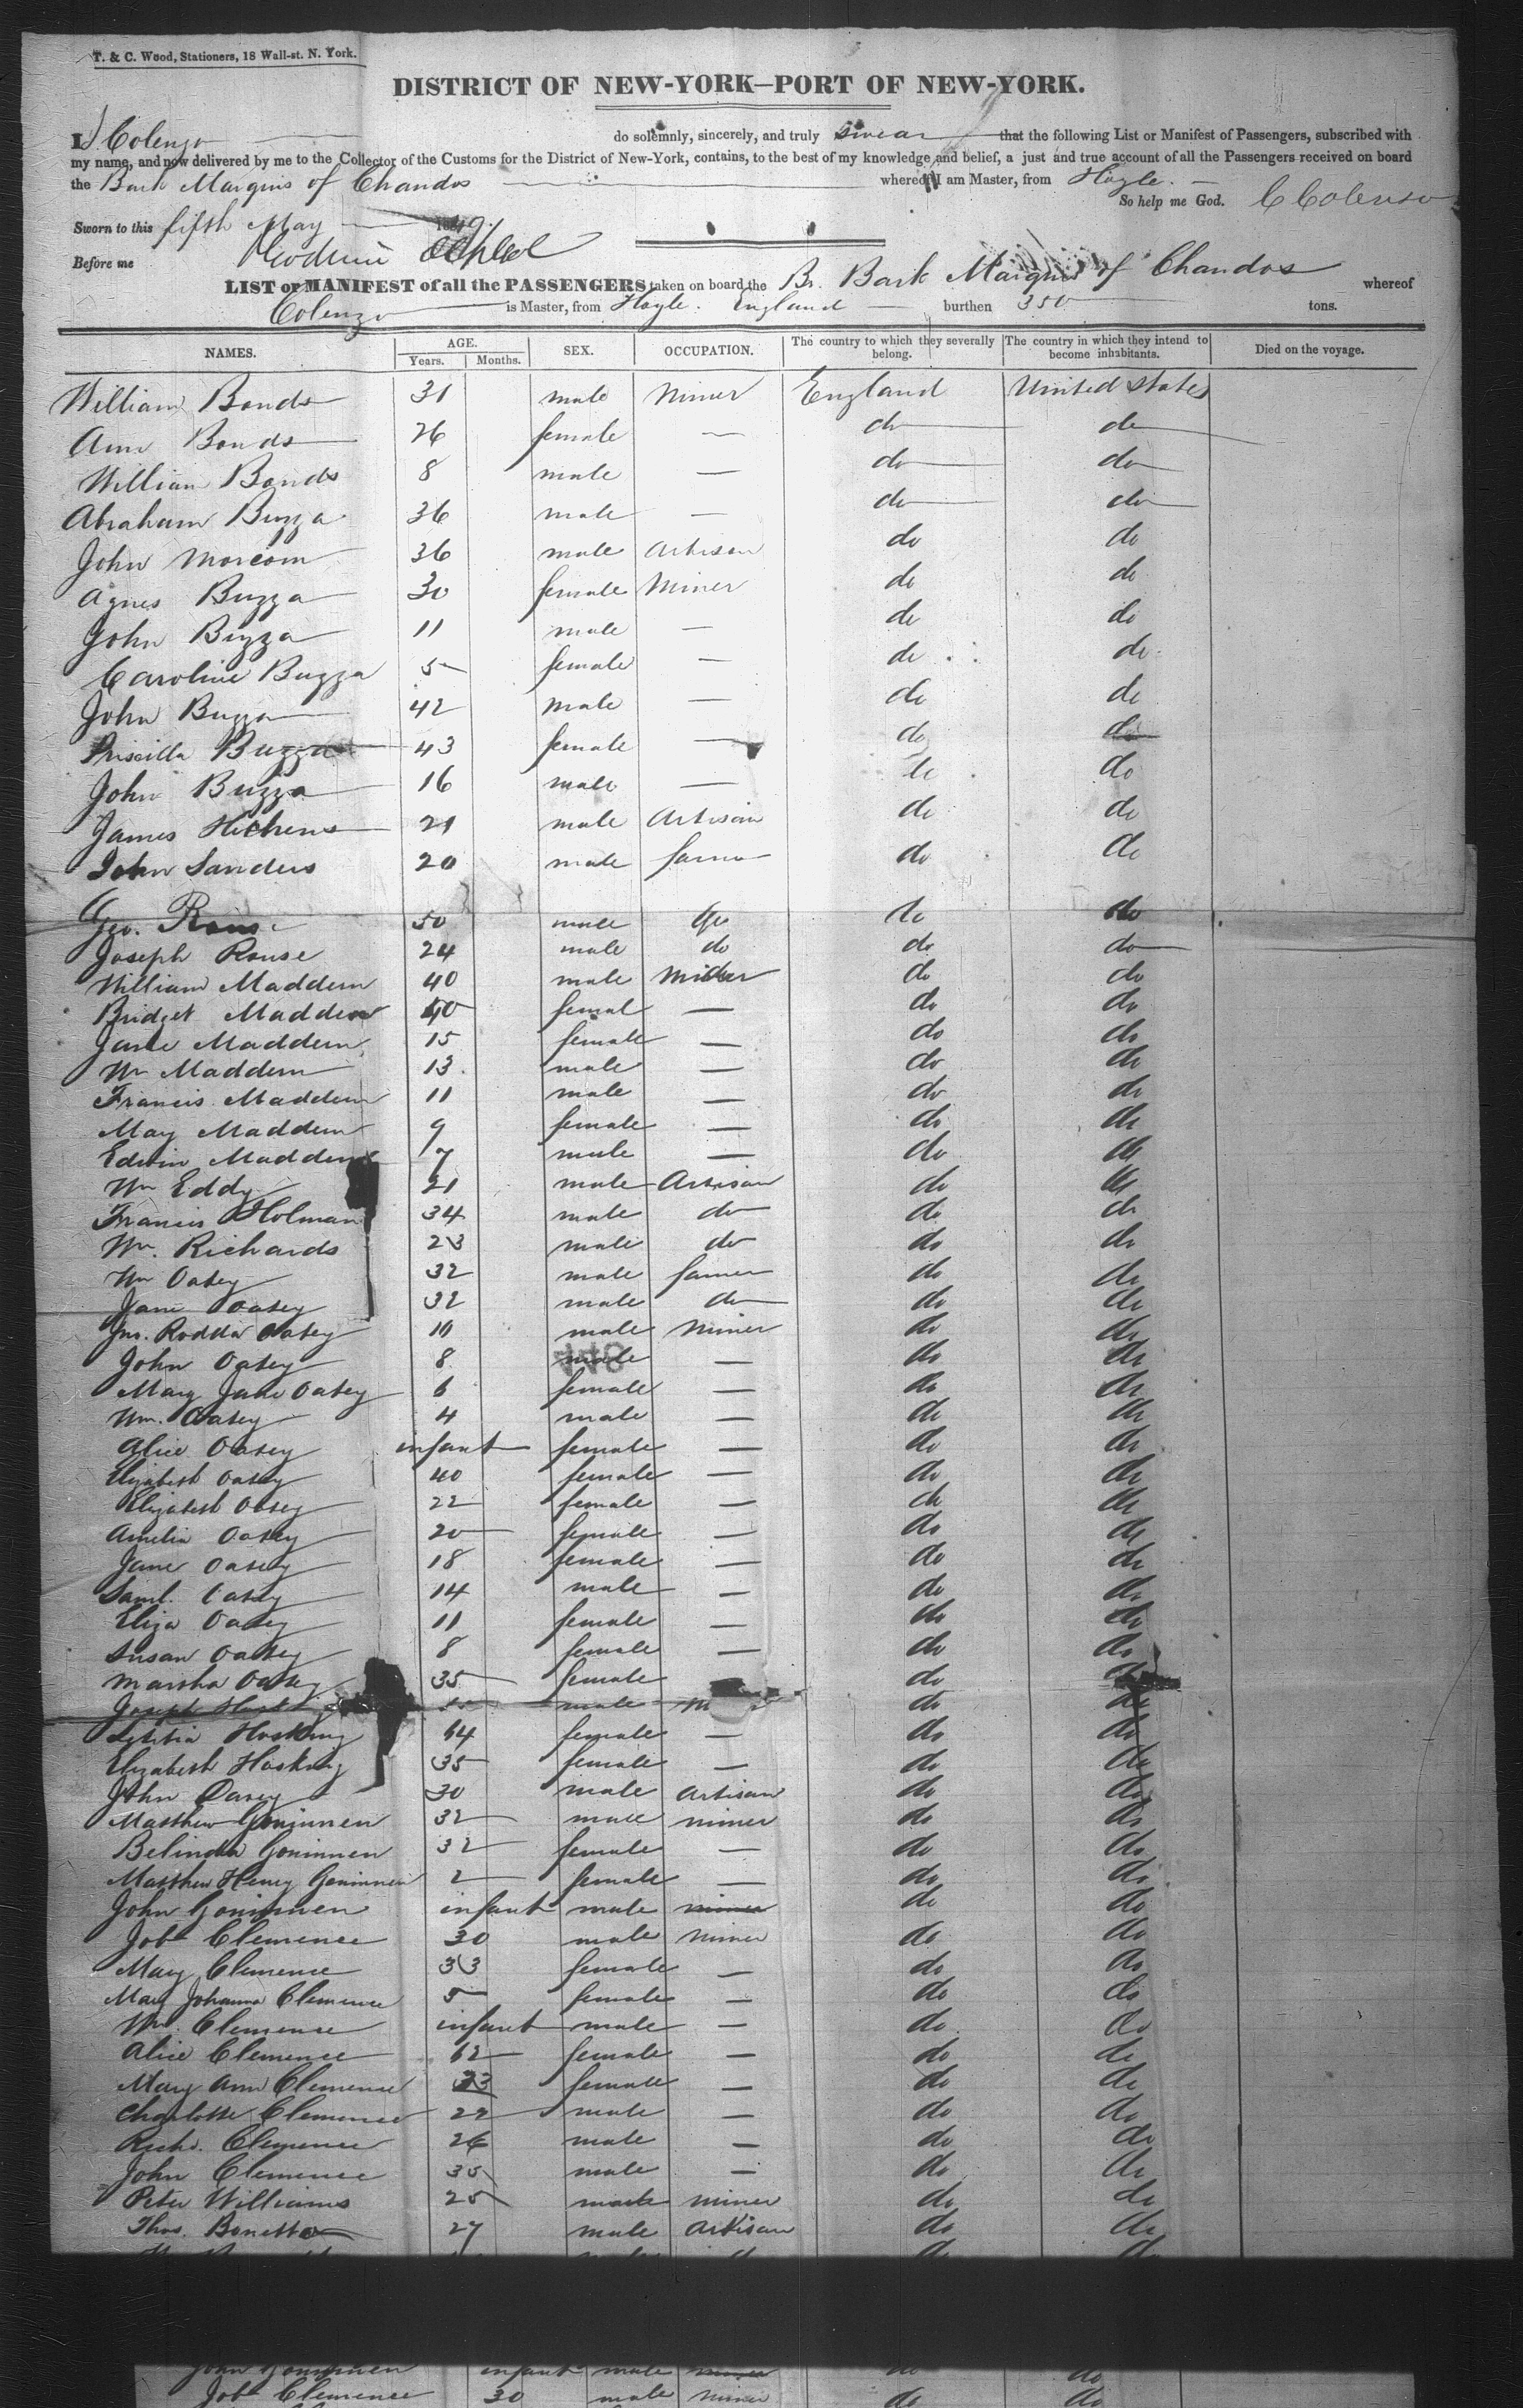 T. & C. Wood, Stationers, 18 Wall-st. N. York.
DISTRICT OF NEW-YORK—PORT OF NEW-YORK.
I, Colenzo do solemnly, sincerely, and truly swear that the following List or Manifest of Passengers, subscribed with
my name, and now delivered by me to the Collector of the Customs for the District of New-York, contains, to the best of my knowledge and belief, a just and true account of all the Passengers received on board
the Bark Marquis of Chandos whereof I am Master, from Hayle.
So help me God. C Colenso
Sworn to this fifth May 1849
Before me
LIST or MANIFEST of all the PASSENGERS taken on board the Br. Bark Marquis of Chandos whereof
Colenzo is Master, from Hayle. England burthen 350 tons.
NAMES. AGE. Years. Months. SEX. OCCUPATION. The country to which they severally belong. The country in which they intend to become inhabitants. Died on the voyage.
William Bonds 31 male Miner England United States
Ann Bonds 26 female — do do
William Bonds 8 male — do do
Abraham Buzza 36 male — do do
John Morcom 36 male Artisan do do
Agnes Buzza 30 female Miner do do
John Buzza 11 male — do do
Caroline Buzza 5 female — do do
John Buzza 42 male — do do
Priscilla Buzza 43 female — do do
John Buzza 16 male — do do
James Hichens 21 male Artisan do do
John Sanders 20 male farmer do do
Geo. Rouse 50 male do do do
Joseph Rouse 24 male do do do
William Maddern 40 male Miner do do
Bridget Maddern 40 femal — do do
Jane Maddern 15 female — do do
Wm Maddern 13 male — do do
Francis Maddern 11 male — do do
May Maddern 9 female — do do
Edwin Maddern 7 male — do do
Wm Eddy 21 male Artisan do do
Francis Holman 34 male do do do
Wm. Richards 23 male do do do
Wm Oatey 32 male farmer do do
Jane Oatey 32 male do do do
Jno. Rodda Oatey 10 male Miner do do
John Oatey 8 male — do do
Mary Jane Oatey 6 female — do do
Wm. Oatey 4 male — do do
Alice Oatey infant female — do do
Elizabeth Oatey 40 female — do do
Elizabeth Oatey 22 female — do do
Amelia Oatey 20 female — do do
Jane Oatey 18 female — do do
Saml. Oatey 14 male — do do
Eliza Oatey 11 female — do do
Susan Oatey 8 female — do do
Martha Oatey 35 female do do
Joseph male do do
Letitia Hosking 64 female — do do
Elizabeth Hosking 35 female — do do
John Davey 30 male Artisan do do
Matthew Goninnen 32 male miner do do
Belinda Goninnen 32 female — do do
Matthew Henry Goninnen 2 female — do do
John Goninnen infant male miner do do
Job Clemence 30 male miner do do
Mary Clemence 33 female — do do
Mary Johanna Clemence 5 female — do do
Wm. Clemence infant male — do do
Alice Clemence 62 female — do do
Mary Ann Clemence 33 female — do do
Charlotte Clemence 22 male — do do
Richd. Clemence 26 male — do do
John Clemence 35 male — do do
Peter Williams 25 male miner do do
Thos. Bonetto 27 male Artisan do do
John Goninnen infant male miner do do
Job Clemence 30 male miner do do